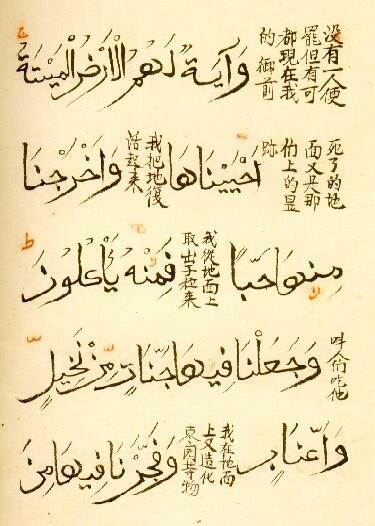 没有一人便
罷但有可
都現在我
的御前
وَآيَةٌ لَهُمُ الْأَرْضُ الْمَيْتَةُ
死了的地
面又是那
上的显
跡
أَحْيَيْنَاهَا
我把地復
活起来
وَأَخْرَجْنَا
مِنْهَا حَبًّا
我從地面上
取出子粒来
فَمِنْهُ يَأْكُلُونَ
吃他
وَجَعَلْنَا فِيهَا جَنَّاتٍ مِّنْ نَّخِيلٍ
وَأَعْنَابٍ
我在地面
上又造化
园等物
وَفَجَّرْنَا فِيهَا مِنَ